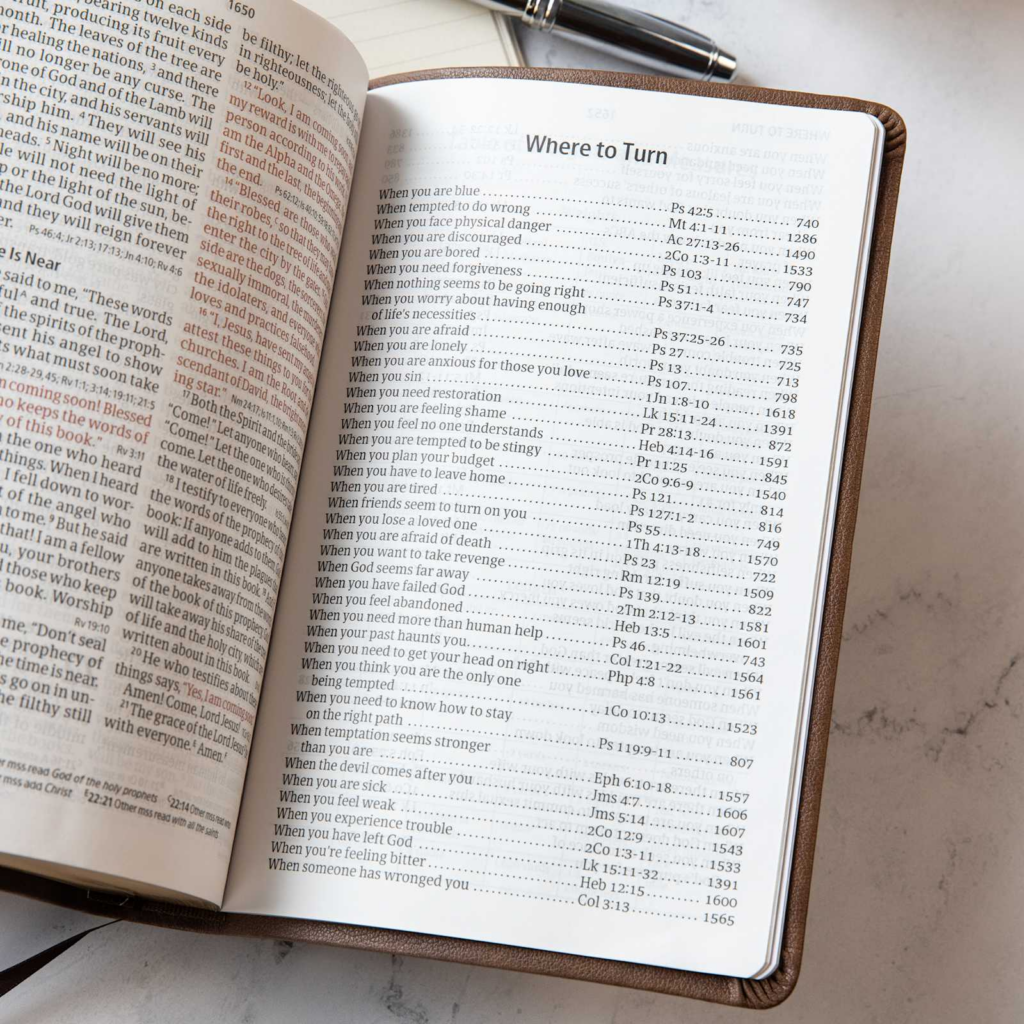 1650
on each side
bearing twelve kinds
fruit, producing its fruit every
month. The leaves of the tree are
healing the nations, ³ and there
no longer be any curse. The
of God and of the Lamb will
in the city, and his servants will
him. ⁴ They will see his
and his name will be on their
⁵ Night will be no more;
will not need the light of
or the light of the sun, be-
the Lord God will give them
and they will reign forever
Ps 46:4; Jr 2:13; 17:13; Jn 4:10; Rv 4:6
Is Near
said to me, "These words
and true. The Lord,
the spirits of the proph-
sent his angel to show
what must soon take
2:28-29,45; Rv 1:1; 3:14; 19:11; 21:5
coming soon! Blessed
who keeps the words of
of this book."
Rv 3:11
the one who heard
things. When I heard
I fell down to wor-
of the angel who
to me. ⁹ But he said
that! I am a fellow
your brothers
those who keep
book. Worship
Rv 19:10
me, "Don't seal
prophecy of
the time is near.
go on in un-
the filthy still
be filthy; let the
in righteousness; let the
be holy."
¹² "Look, I am coming
my reward is with me
person according to his
am the Alpha and the
first and the last, the beginning
the end.
¹⁴ "Blessed are those who
their robes, so that they
the right to the tree of life
enter the city by the gates.
side are the dogs, the
sexually immoral, the
the idolaters, and everyone
loves and practices
¹⁶ "I, Jesus, have sent my
attest these things to you
churches. I am the Root and
scendant of David, the bright
ing star."
¹⁷ Both the Spirit and the
"Come!" Let anyone who hears
"Come!" Let the one who
come. Let the one who desires
the water of life freely.
¹⁸ I testify to everyone who
the words of the prophecy of
book: If anyone adds to them
will add to him the plagues
are written in this book.
anyone takes away from the
of the book of this prophecy,
will take away his share of the
of life and the holy city, which
written about in this book.
²⁰ He who testifies about
things says, "Yes, I am coming
Amen! Come, Lord Jesus!
²¹ The grace of the Lord Jesus
with everyone. Amen.
mss read God of the holy prophets
22:14 Other mss read
mss add Christ
22:21 Other mss read with all the saints
Where to Turn
When you are blue ..... Ps 42:5 ..... 740
When tempted to do wrong ..... Mt 4:1-11 ..... 1286
When you face physical danger ..... Ac 27:13-26 ..... 1490
When you are discouraged ..... 2Co 1:3-11 ..... 1533
When you are bored ..... Ps 103 ..... 790
When you need forgiveness ..... Ps 51 ..... 747
When nothing seems to be going right ..... Ps 37:1-4 ..... 734
When you worry about having enough
of life's necessities ..... Ps 37:25-26 ..... 735
When you are afraid ..... Ps 27 ..... 725
When you are lonely ..... Ps 13 ..... 713
When you are anxious for those you love ..... Ps 107 ..... 798
When you sin ..... 1Jn 1:8-10 ..... 1618
When you need restoration ..... Lk 15:11-24 ..... 1391
When you are feeling shame ..... Pr 28:13 ..... 872
When you feel no one understands ..... Heb 4:14-16 ..... 1591
When you are tempted to be stingy ..... Pr 11:25 ..... 845
When you plan your budget ..... 2Co 9:6-9 ..... 1540
When you have to leave home ..... Ps 121 ..... 814
When you are tired ..... Ps 127:1-2 ..... 816
When friends seem to turn on you ..... Ps 55 ..... 749
When you lose a loved one ..... 1Th 4:13-18 ..... 1570
When you are afraid of death ..... Ps 23 ..... 722
When you want to take revenge ..... Rm 12:19 ..... 1509
When God seems far away ..... Ps 139 ..... 822
When you have failed God ..... 2Tm 2:12-13 ..... 1581
When you feel abandoned ..... Heb 13:5 ..... 1601
When you need more than human help ..... Ps 46 ..... 743
When your past haunts you ..... Col 1:21-22 ..... 1564
When you need to get your head on right ..... Php 4:8 ..... 1561
When you think you are the only one
being tempted ..... 1Co 10:13 ..... 1523
When you need to know how to stay
on the right path ..... Ps 119:9-11 ..... 807
When temptation seems stronger
than you are ..... Eph 6:10-18 ..... 1557
When the devil comes after you ..... Jms 4:7 ..... 1606
When you are sick ..... Jms 5:14 ..... 1607
When you feel weak ..... 2Co 12:9 ..... 1543
When you experience trouble ..... 2Co 1:3-11 ..... 1533
When you have left God ..... Lk 15:11-32 ..... 1391
When you're feeling bitter ..... Heb 12:15 ..... 1600
When someone has wronged you ..... Col 3:13 ..... 1565